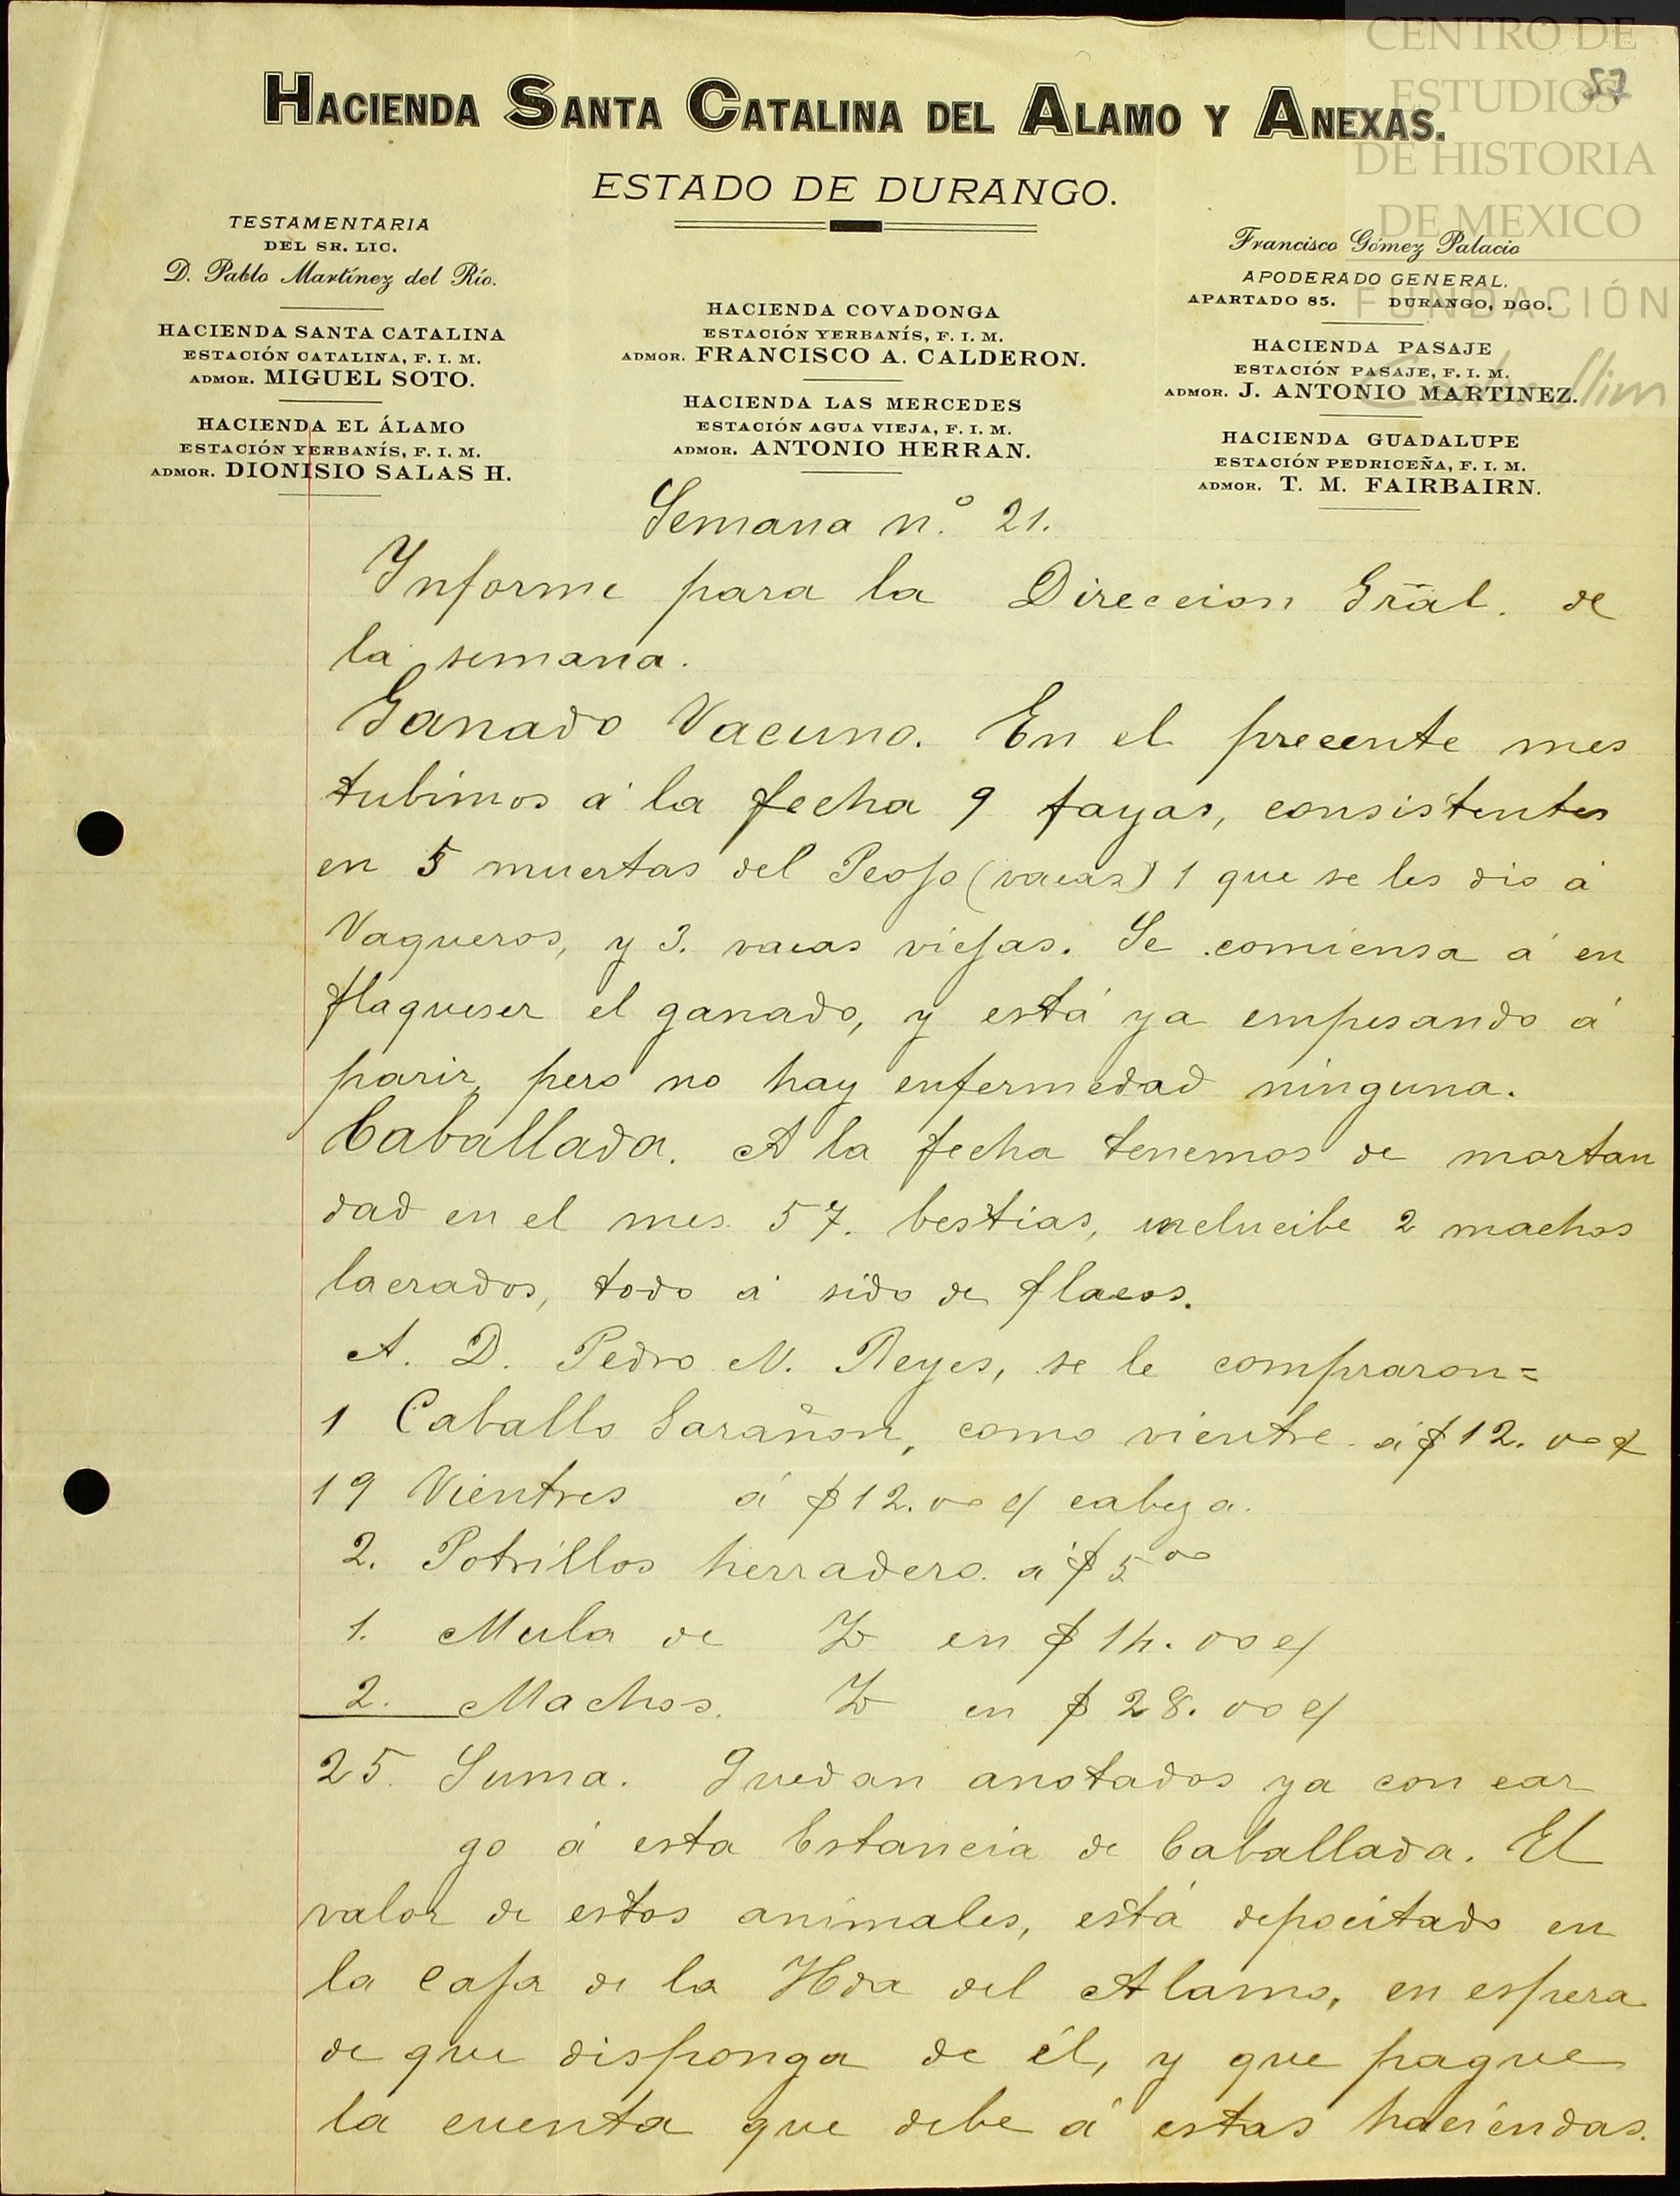 CENTRO DE
ESTUDIOS
DE HISTORIA
DE MEXICO
FUNDACIÓN
Carlos Slim
57
HACIENDA SANTA CATALINA DEL ALAMO Y ANEXAS.
ESTADO DE DURANGO.
TESTAMENTARIA
DEL SR. LIC.
D. Pablo Martínez del Río.
HACIENDA SANTA CATALINA
ESTACIÓN CATALINA, F. I. M.
ADMOR. MIGUEL SOTO.
HACIENDA EL ÁLAMO
ESTACIÓN YERBANÍS, F. I. M.
ADMOR. DIONISIO SALAS H.
HACIENDA COVADONGA
ESTACIÓN YERBANÍS, F. I. M.
ADMOR. FRANCISCO A. CALDERON.
HACIENDA LAS MERCEDES
ESTACIÓN AGUA VIEJA, F. I. M.
ADMOR. ANTONIO HERRAN.
Francisco Gómez Palacio
APODERADO GENERAL.
APARTADO 85. DURANGO, DGO.
HACIENDA PASAJE
ESTACIÓN PASAJE, F. I. M.
ADMOR. J. ANTONIO MARTINEZ.
HACIENDA GUADALUPE
ESTACIÓN PEDRICEÑA, F. I. M.
ADMOR. T. M. FAIRBAIRN.
Semana n.º 21.
Informe para la Direccion Gral. de
la semana.
Ganado Vacuno. En el precente mes
tubimos á la fecha 9 fayas, consistentes
en 5 muertas del Peojo (vacas) 1 que se les dio á
Vaqueros, y 3. vacas viejas. Se comiensa á en
flaqueser el ganado, y está ya empesando á
parir, pero no hay enfermedad ninguna.
Caballada. A la fecha tenemos de mortan
dad en el mes 57. bestias, inclucibe 2 machos
lacrados, todo á sido de flacos.
A. D. Pedro N. Reyes, se le compraron=
1 Caballo Garañon, como vientre á $12.00 c/
19 Vientres á $12.00 c/ cabeza.
2. Potrillos herradero. á $5 00
1. Mula de Id en $14.00 c/
2. Machos. Id en $28.00 c/
25. Suma. Quedan anotados ya con car
go á esta Estancia de Caballada. El
valor de estos animales, está depocitado en
la Caja de la Hda del Alamo, en espera
de que disponga de él, y que pague
la cuenta que debe á estas haciendas.